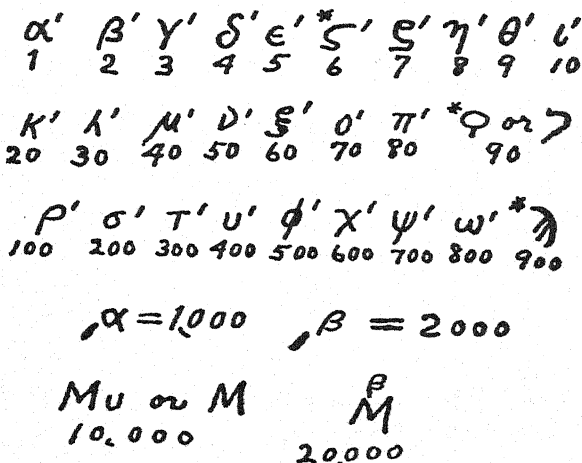 α′ β′ γ′ δ′ ϵ′ *ϛ′ ζ′ η′ θ′ ι′
1 2 3 4 5 6 7 8 9 10
κ′ λ′ μ′ ν′ ξ′ ο′ π′ *ϙ or ϟ
20 30 40 50 60 70 80 90
ρ′ σ′ τ′ υ′ ϕ′ χ′ ψ′ ω′ *ϡ
100 200 300 400 500 600 700 800 900
͵α = 1,000 ͵β = 2000
Mυ or M β M
10,000 20,000